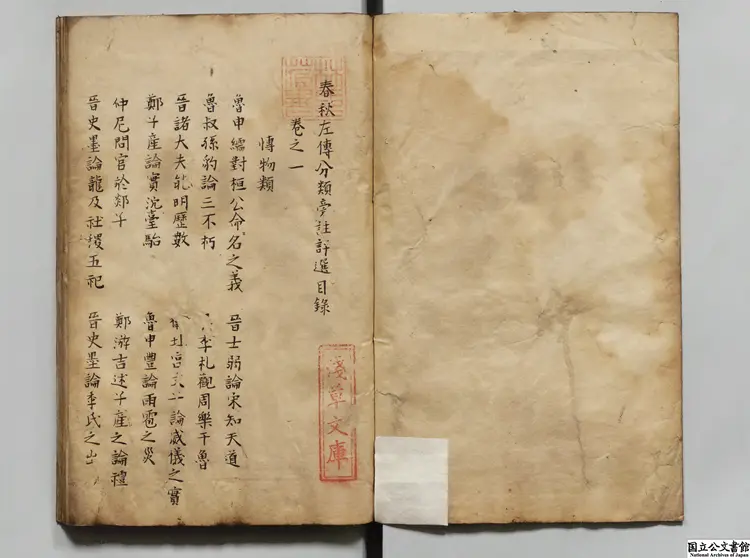 春秋左傳分類旁註評選目錄
卷之一
博物類
魯申繻對桓公命名之義
晉士弱論宋知天道
魯叔孫豹論三不朽
季札觀周樂于魯
晉諸大夫能明歷數
宮文子論威儀之實
鄭子產論實沈臺駘
魯申豐論雨雹之災
仲尼問官於郯子
鄭游吉述子產之論禮
晉史墨論龍及社稷五祀
晉史墨論季氏之出
淺草文庫
国立公文書館
National Archives of Japan